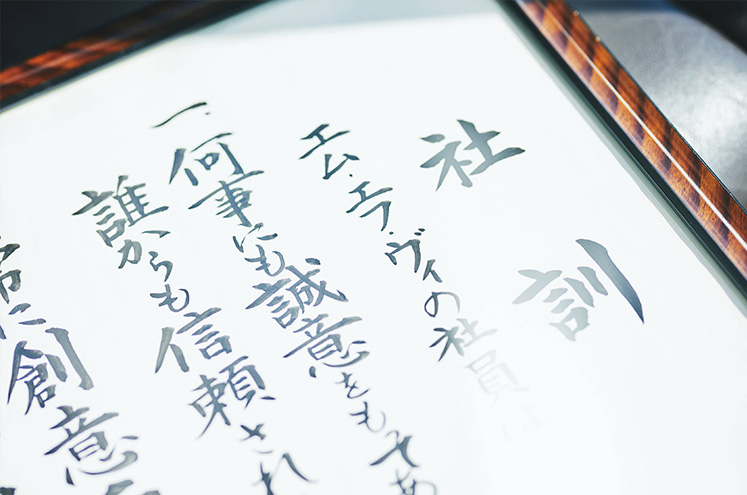 社訓
エム・エラ・ヴィの社員は
一、何事にも誠意をもて
誰からも信頼され
常に創意